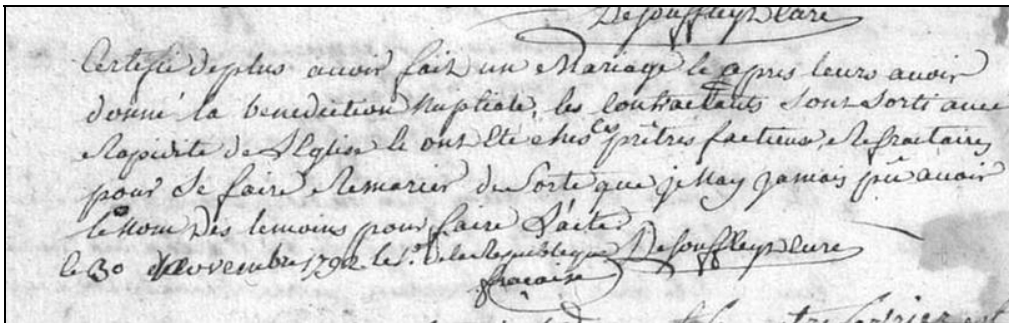 Desouffleys Cure
Certifie deplus avoir fait un Mariage le apres leurs avoir
donné la benediction Nuptiale, les Contractants Sont Sorti avec
Rapidité de L'Eglise le ont Eté chés Ces prêtres factieux, Refractaires
pour Se faire Remarier de Sorte que je Nay jamais pû avoir
le Nom Des temoins pour faire L'acte
le 30 Novembre 1792 le 1er de la Republique Desouffleys Cure
francaise